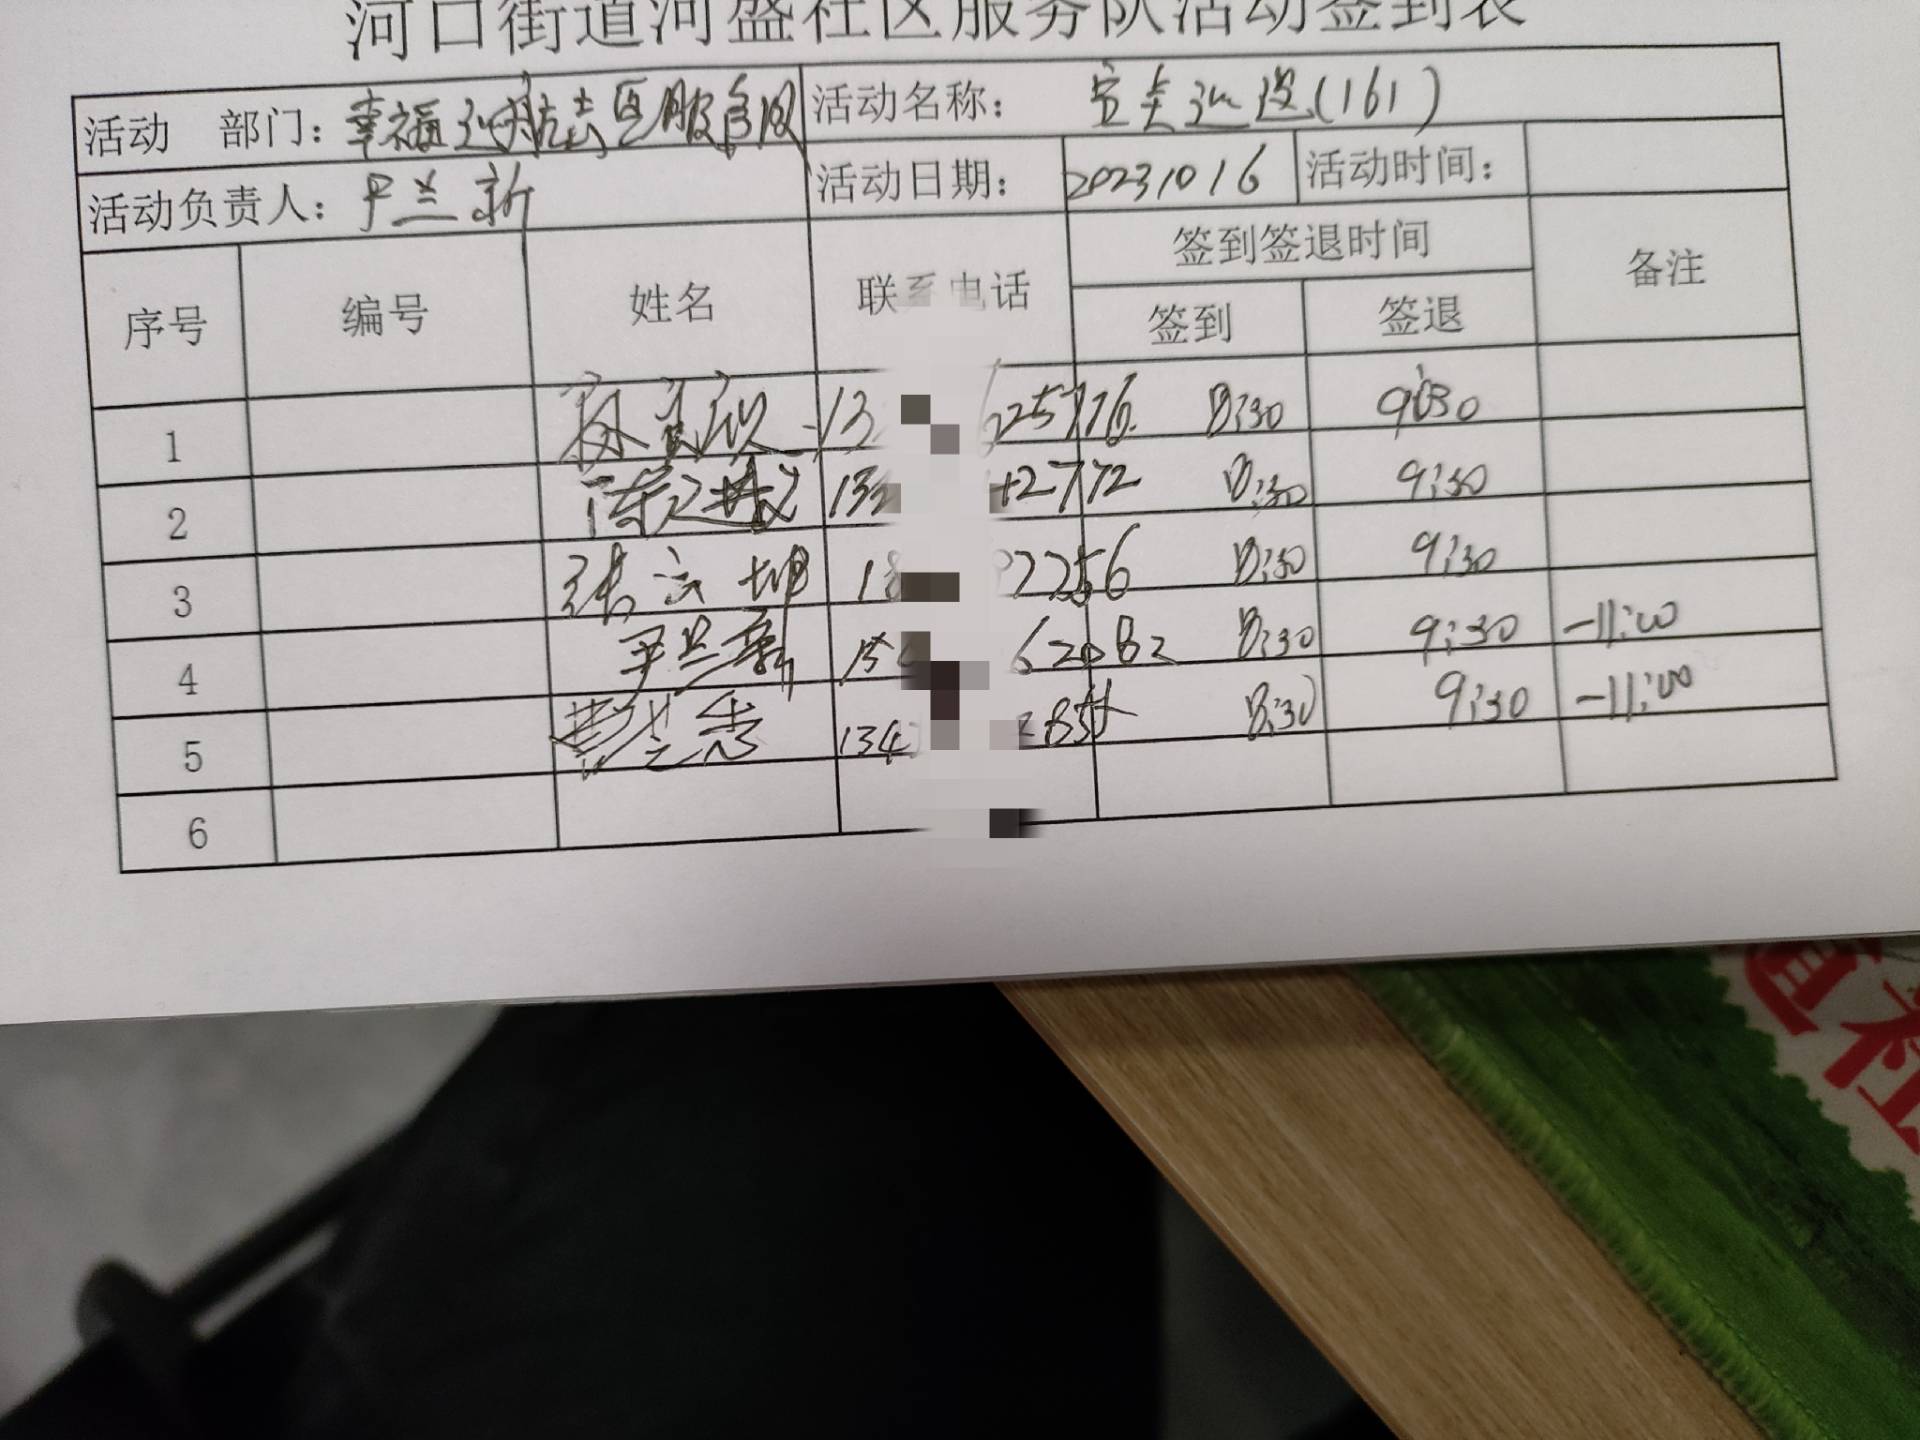 河口街道河盛社区服务队活动签到表
活动 部门： 幸福 社区服务队 活动名称： (161)
活动负责人： 尹兰新 活动日期： 20231016 活动时间：
序号 编号 姓名 联系电话 签到签退时间 备注
签到 签退
1 13 25776 8:30 9:30
2 陈 132 2772 8:30 9:30
3 张云坤 18 2256 8:30 9:30
4 尹兰新 15 62082 8:30 9:30 -11:00
5 134 8:30 9:30 -11:00
6
道社